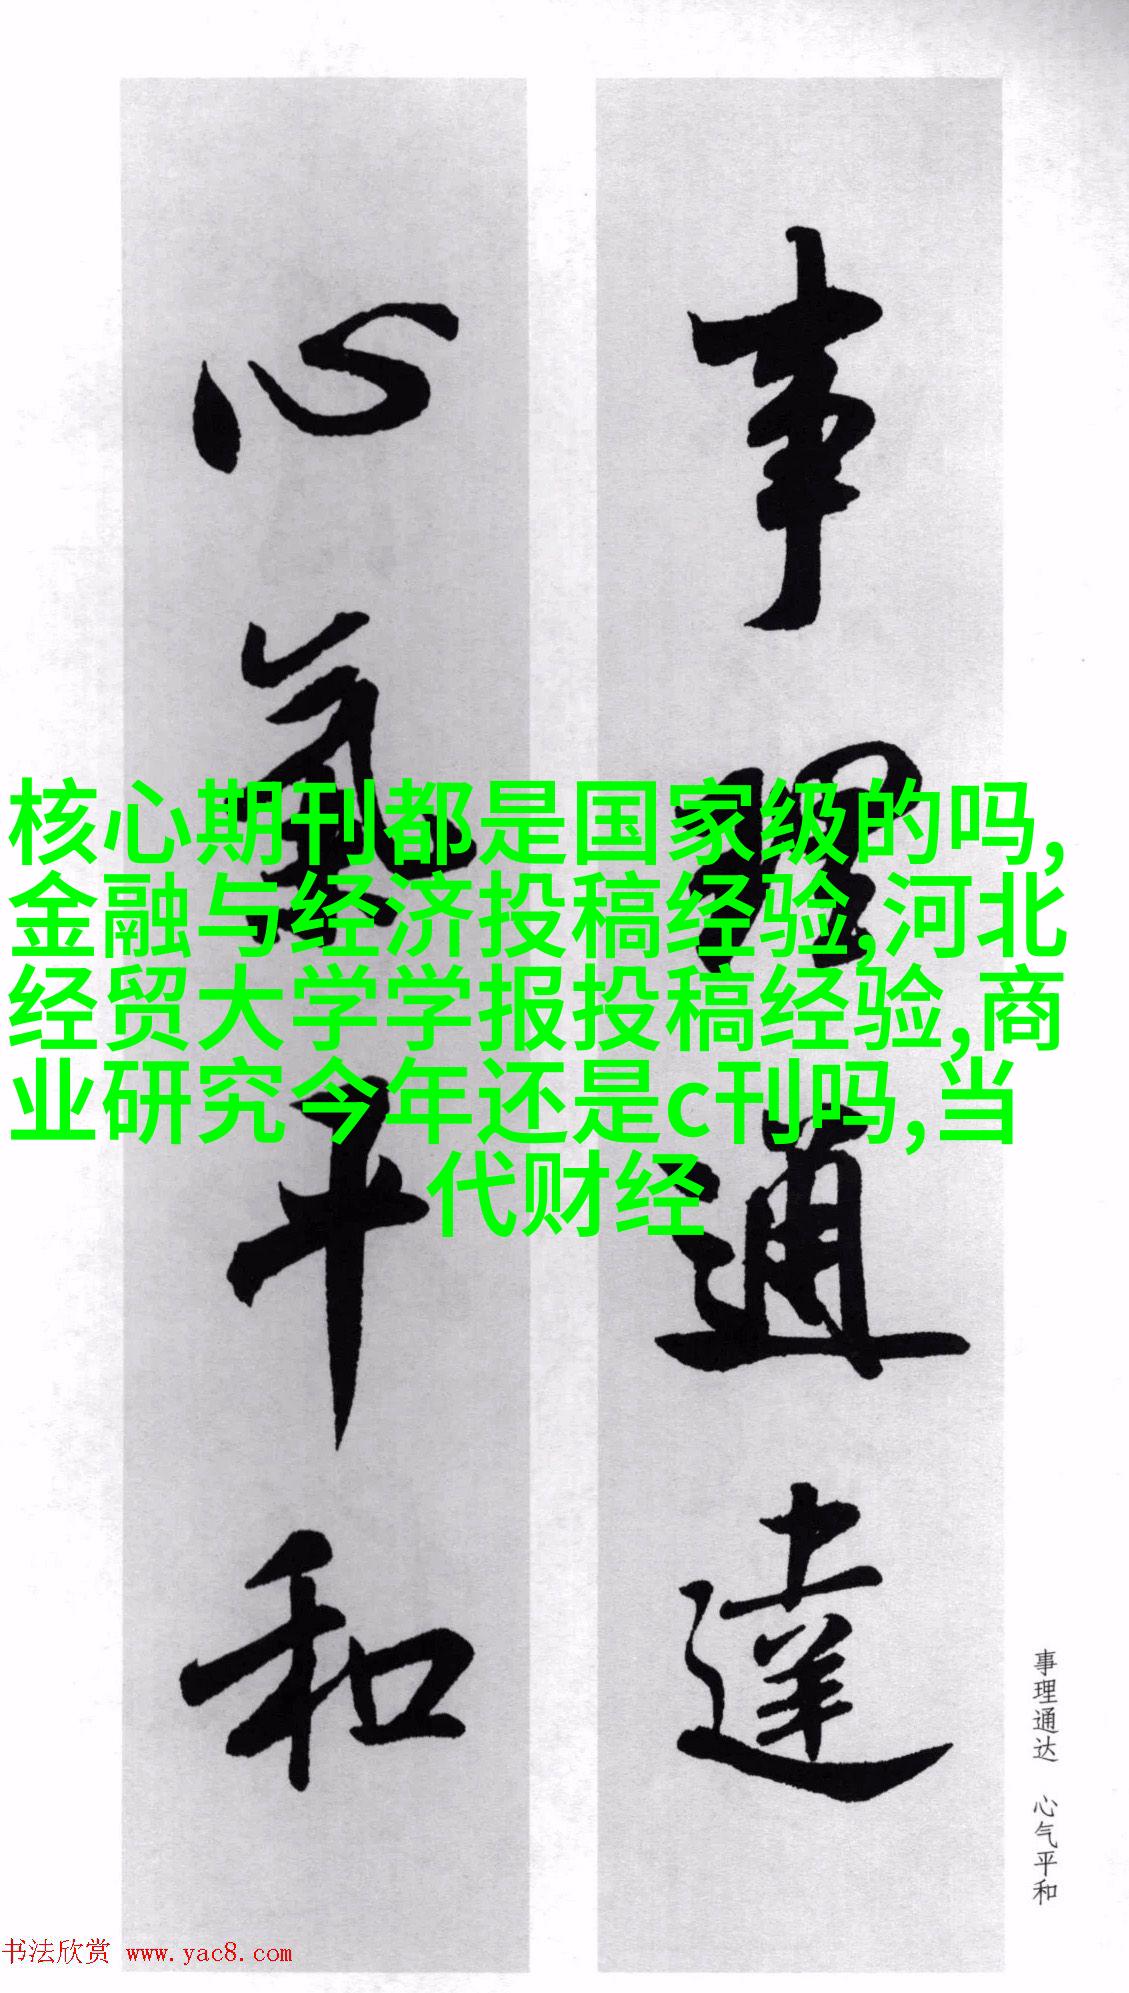 事理通達
心氣平和
核心期刊都是国家级的吗,
金融与经济投稿经验,河北
经贸大学学报投稿经验,商
业研究今年还是c刊吗,当
代财经
事理通达 心气平和
书法欣赏 www.yac8.com